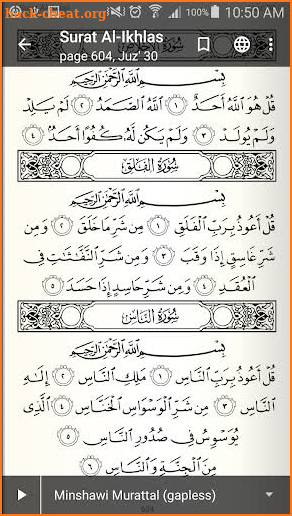 hack-cheat.org
10:50 AM
Surat Al-Ikhlas
page 604, Juz' 30
بِسْمِ ٱللَّهِ ٱلرَّحْمَٰنِ ٱلرَّحِيمِ
قُلْ هُوَ ٱللَّهُ أَحَدٌ ١ ٱللَّهُ ٱلصَّمَدُ ٢ لَمْ يَلِدْ
وَلَمْ يُولَدْ ٣ وَلَمْ يَكُن لَّهُۥ كُفُوًا أَحَدٌۢ ٤
سُورَةُ الفَلَقِ
بِسْمِ ٱللَّهِ ٱلرَّحْمَٰنِ ٱلرَّحِيمِ
قُلْ أَعُوذُ بِرَبِّ ٱلْفَلَقِ ١ مِن شَرِّ مَا خَلَقَ ٢ وَمِن
شَرِّ غَاسِقٍ إِذَا وَقَبَ ٣ وَمِن شَرِّ ٱلنَّفَّٰثَٰتِ فِى
ٱلْعُقَدِ ٤ وَمِن شَرِّ حَاسِدٍ إِذَا حَسَدَ ٥
سُورَةُ النَّاسِ
بِسْمِ ٱللَّهِ ٱلرَّحْمَٰنِ ٱلرَّحِيمِ
قُلْ أَعُوذُ بِرَبِّ ٱلنَّاسِ ١ مَلِكِ ٱلنَّاسِ ٢ إِلَٰهِ
ٱلنَّاسِ ٣ مِن شَرِّ ٱلْوَسْوَاسِ ٱلْخَنَّاسِ ٤ ٱلَّذِى
يُوَسْوِسُ فِى صُدُورِ ٱلنَّاسِ ٥
مِنَ ٱلْجِنَّةِ وَٱلنَّاسِ ٦
Minshawi Murattal (gapless)
604